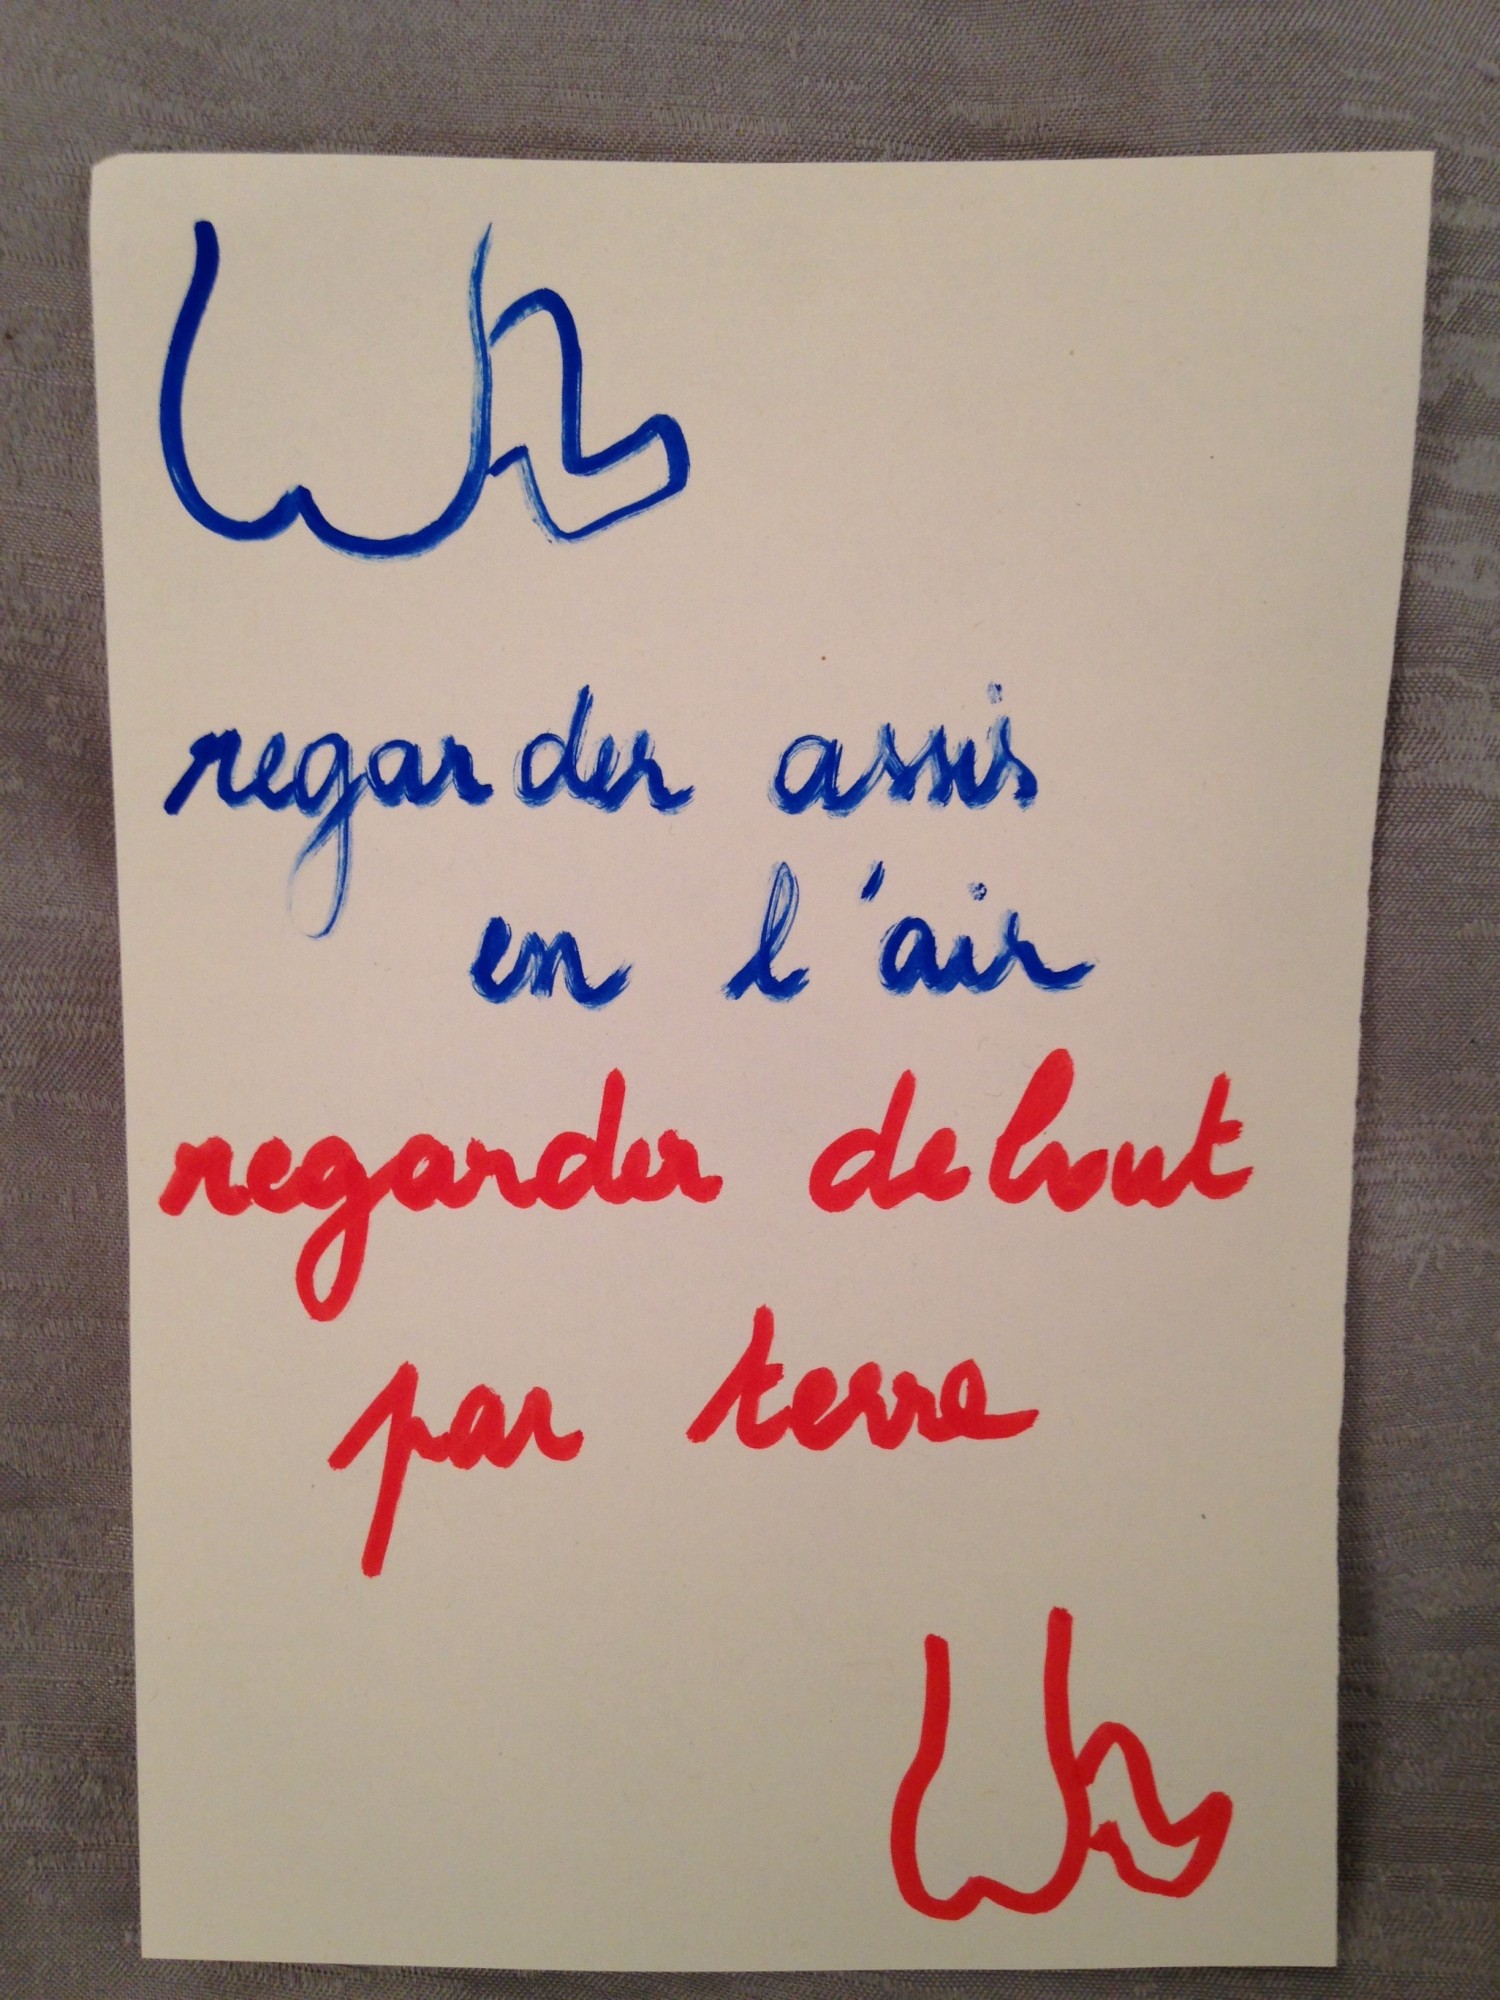 regarder assis
en l'air
regarder debout
par terre